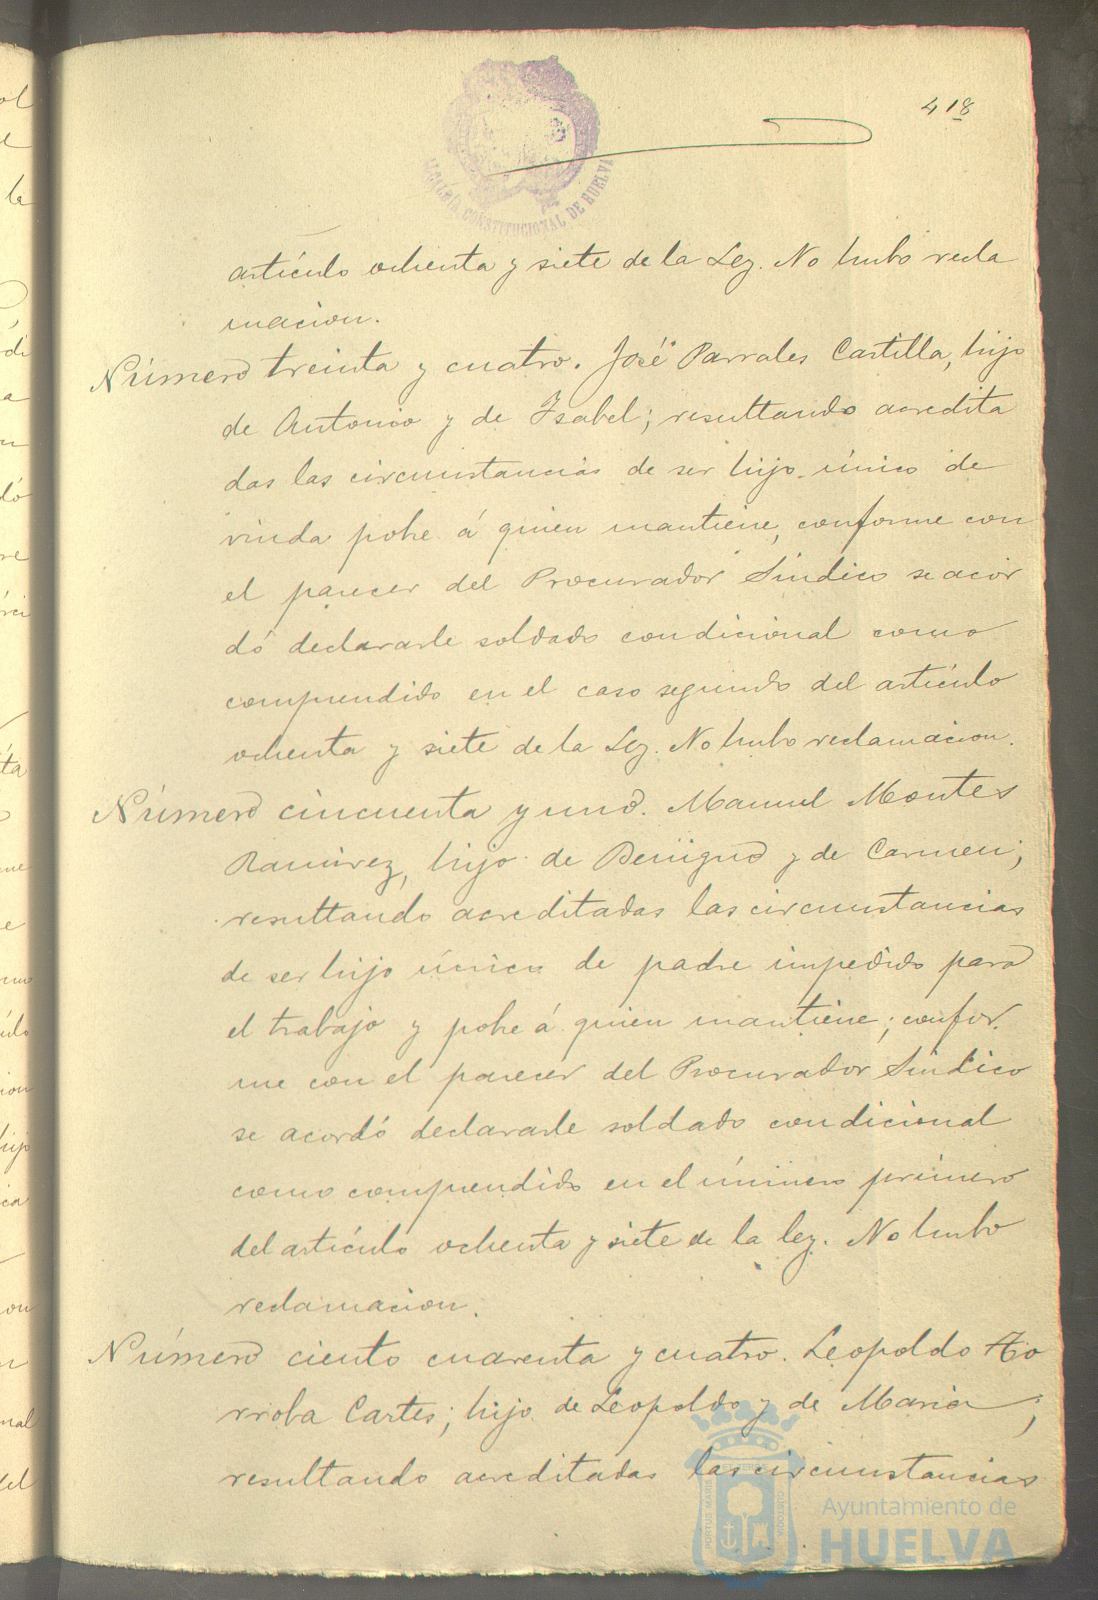 418
ALCALDÍA CONSTITUCIONAL DE HUELVA
artículo ochenta y siete de la Ley. No hubo recla
macion.
Número treinta y cuatro. José Parrales Castilla, hijo
de Antonio y de Isabel; resultando acredita
das las circunstancias de ser hijo único de
viuda pobre á quien mantiene, conforme con
el parecer del Procurador Síndico se acor
dó declararle soldado condicional como
comprendido en el caso segundo del artículo
ochenta y siete de la Ley. No hubo reclamacion.
Número cincuenta y uno. Manuel Montes
Ramirez, hijo de Benigno y de Carmen;
resultando acreditadas las circunstancias
de ser hijo único de padre impedido para
el trabajo y pobre á quien mantiene; confor
me con el parecer del Procurador Síndico
se acordó declararle soldado condicional
como comprendido en el número primero
del artículo ochenta y siete de la ley. No hubo
reclamacion.
Número ciento cuarenta y cuatro. Leopoldo
rroba Cartes; hijo de Leopoldo y de Maria;
resultando acreditadas las circunstancias
PORTUS MARIS CUSTODIA
Ayuntamiento de
HUELVA